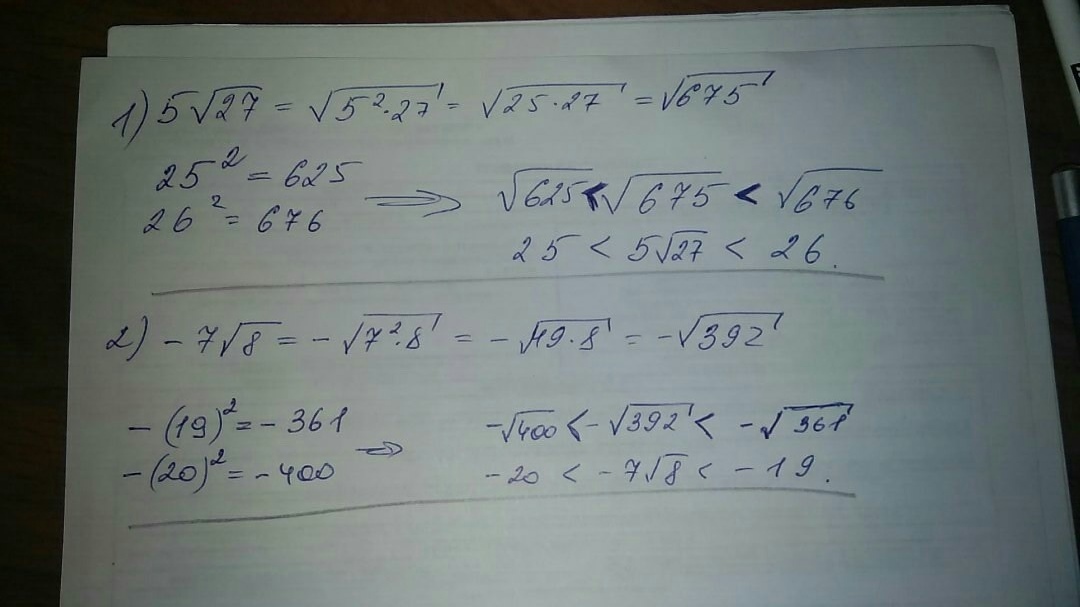 1) 5√27 = √5²·27 = √25·27 = √675
25² = 625
26² = 676 ⟹ √625 < √675 < √676
25 < 5√27 < 26.
2) - 7√8 = - √7²·8 = - √49·8 = - √392
- (19)² = - 361
- (20)² = - 400 ⟹ - √400 < - √392 < - √361
- 20 < - 7√8 < - 19.